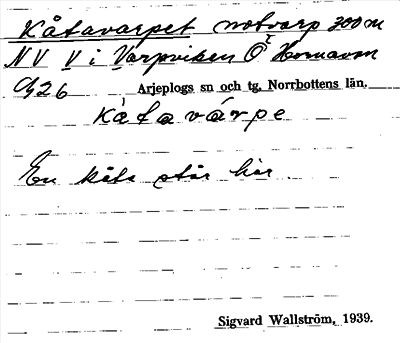 Kåtavarpet notvarp 300 m
NV V i Varpviken Ö Hornavan
Arjeplogs sn och tg, Norrbottens län.
kå̀tavárpe
En kåta står här.
Sigvard Wallström, 1939.